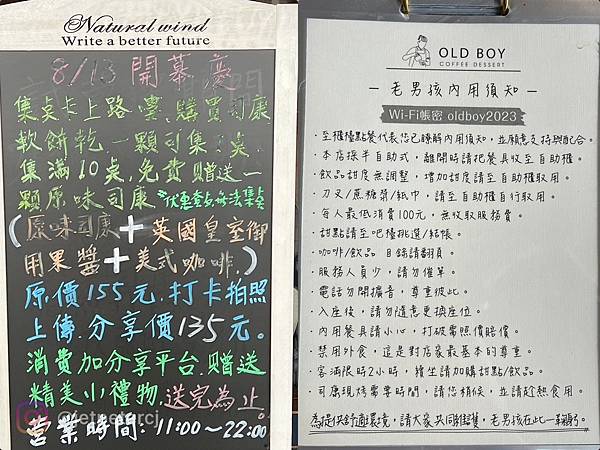 Natural wind
Write a better future
8/13 開慕慶
集点卡上路嘍,購買司康
軟餅乾一顆司集1点,
集滿10点,免費贈送一
顆原味司康 *優惠套点無法集点
(原味司康+英國皇室御
用果醬+美式咖啡,)
原價155元.打卡拍照
上傳.分享價135元。
消費加分享平台.贈送
精美小禮物.送完為止。
營業時間:11:00~22:00
OLD BOY
COFFEE DESSERT
— 老男孩內用須知 —
Wi-Fi帳密 oldboy2023
·至櫃檯點餐代表您已瞭解內用須知,並願意支持與配合。
·本店採半自助式,離開時請把餐具收至自助櫃。
·飲品甜度無調整,增加甜度請至自助櫃取用。
·刀叉/蔗糖漿/紙巾,請至自助櫃自行取用。
·每人最低消費100元,無收取服務費。
·甜點請至吧檯挑選/結帳。
·咖啡/飲品 目錄請翻頁。
·服務人員少,請勿催單。
·電話勿開擴音,尊重彼此。
·入座後,請勿隨意更換座位。
·內用餐具請小心,打破需照價賠償。
·禁用外食,這是對店家最基本的尊重。
·客滿限時2小時,續坐請加購甜點/飲品。
·司康現烤需要時間,請您稍候,並請趁熱食用。
為提供舒適環境,請大家共同維護,老男孩在此一鞠躬。